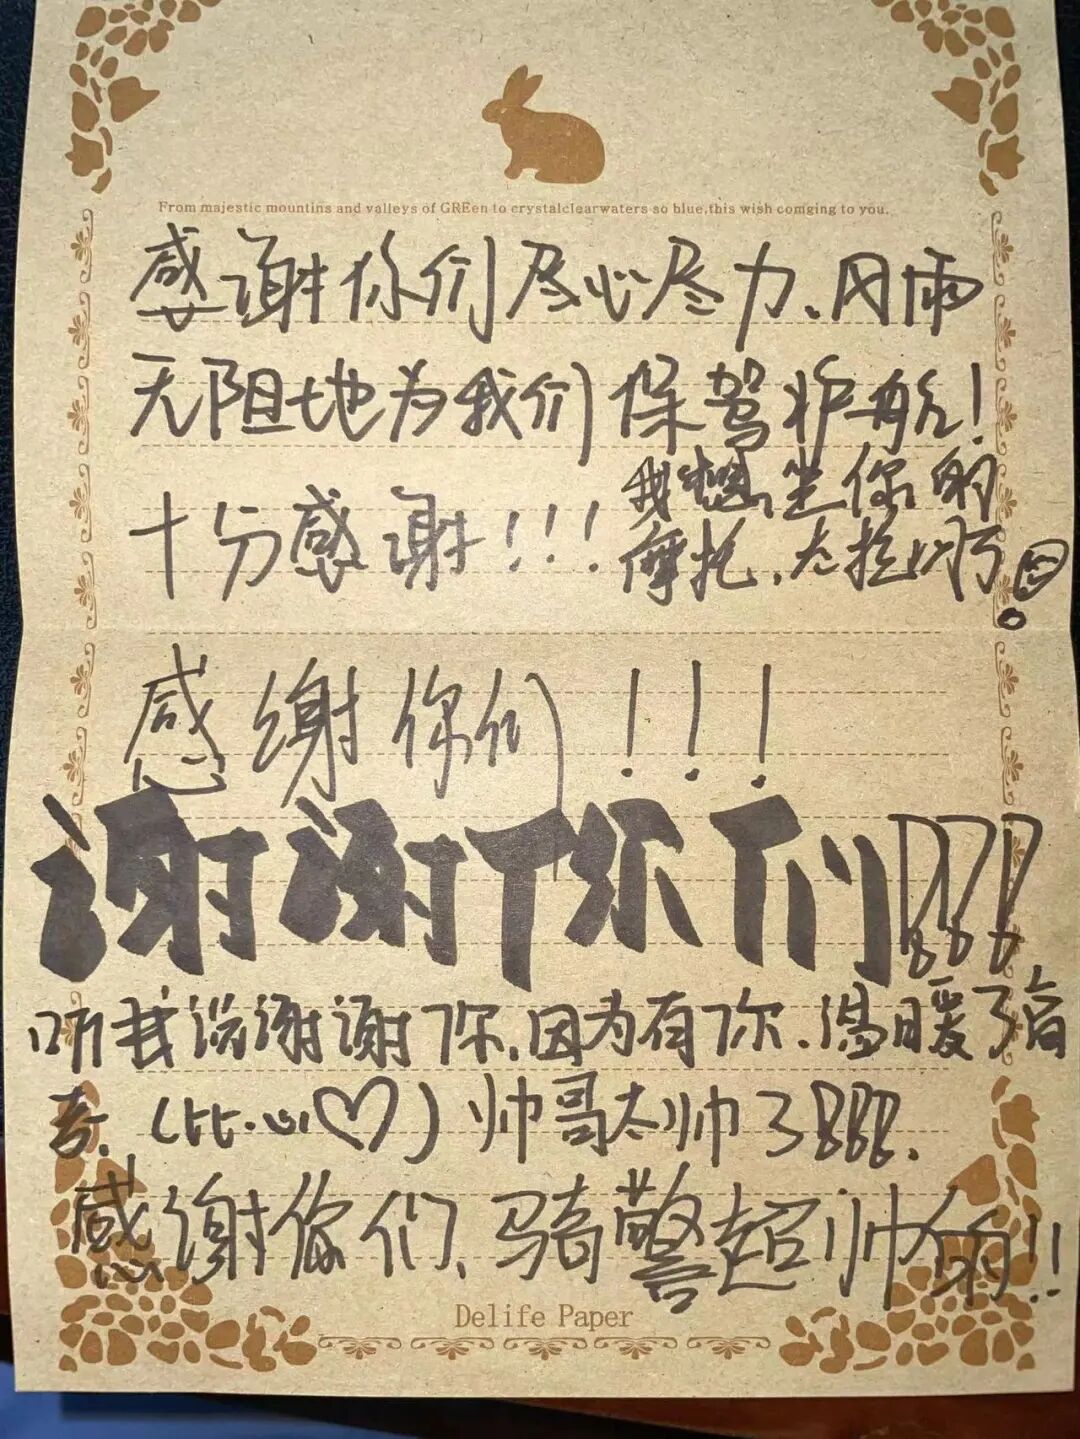 From majestic mountins and valleys of GREen to crystalclearwaters so blue,this wish comging to you.
感谢你们尽心尽力、风雨
无阻地为我们保驾护航!
十分感谢!!!
我想坐你的
摩托、太拉风
感谢你们!!!
谢谢你们!!!
听我说谢谢你,因为有你.温暖了四
季.(比心♡)帅哥太帅了!!!.
感谢你们、骑警超帅的!!
Delife Paper